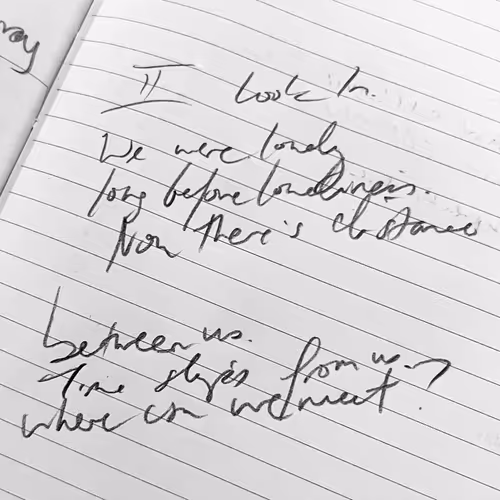 II Look In.
We were lonely
long before loneliness.
Now there's distance
between us.
Time slips from us.
where can we meet?